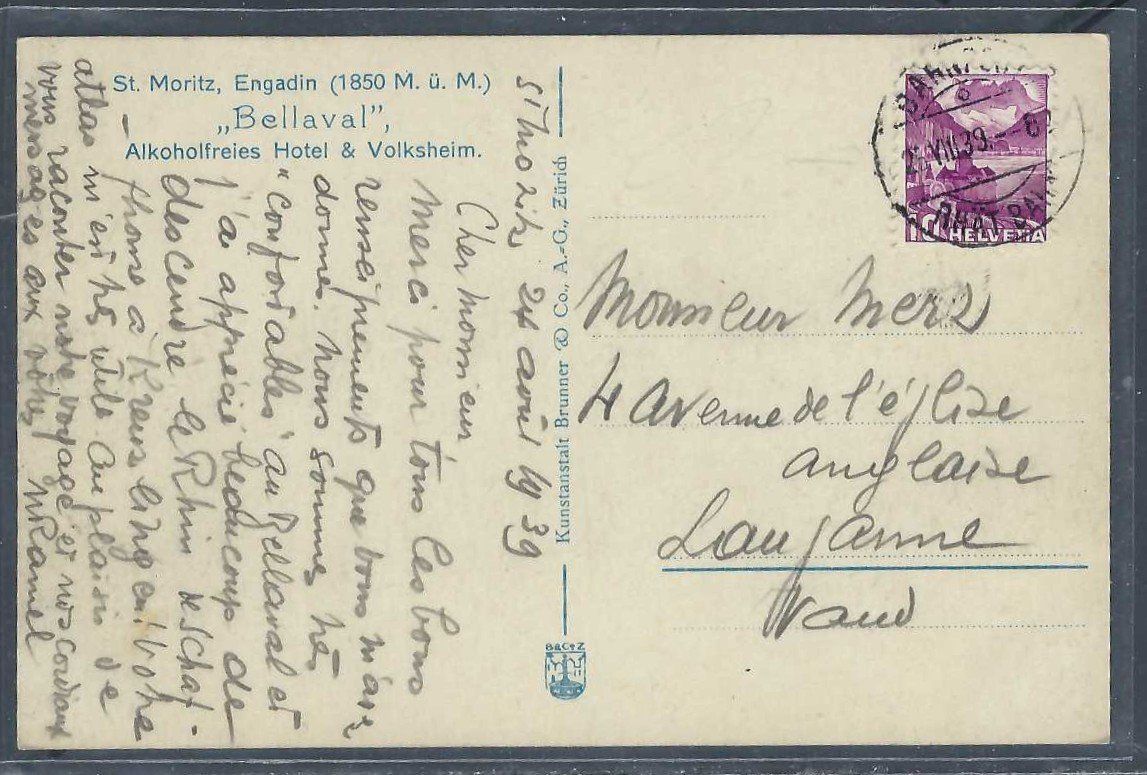 St. Moritz, Engadin (1850 M. ü. M.)
„Bellaval”,
Alkoholfreies Hotel & Volksheim.
St Moritz 24 août 1939
Cher Monsieur
Merci pour tous les bons
renseignements que vous m'avez
donnés. Nous sommes très
"confortables" au Bellaval et
j'ai apprécié beaucoup de
descendre le Rhin de Schaf-
fhouse à Kreuzlingen. Votre
atlas m'est très utile. Au plaisir de
vous raconter notre voyage et nos cordiaux
messages aux vôtres
Kunstanstalt Brunner & Co., A.-G., Zürich
B&C⁰Z
10 HELVETIA
BAHNPOST
VIII.39.
RHÄT. BAHN
Monsieur Merz
4 Avenue de l'église
anglaise
Lausanne
Vaud